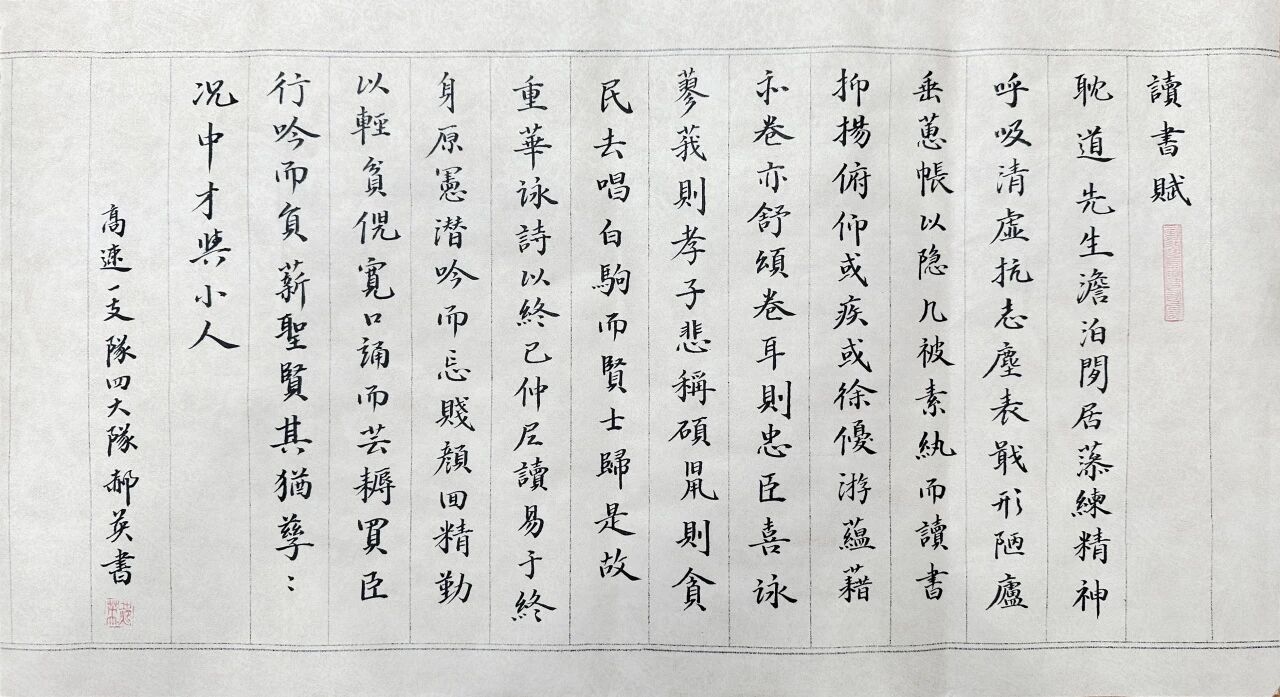 讀書賦
耽道先生澹泊閒居藻練精神
呼吸清虛抗志塵表戢形陋廬
垂蕙帳以隐几被素紈而讀書
抑揚俯仰或疾或徐優游蘊藉
亦卷亦舒頌卷耳則忠臣喜詠
蓼莪則孝子悲稱碩鼠則貪
民去唱白駒而賢士歸是故
重華詠詩以終已仲尼讀易于終
身原憲潛吟而忘賤顏回精勤
以輕貧倪寬口誦而芸耨買臣
行吟而負薪聖賢其猶孳:
况中才與小人
高速一支隊四大隊郝英書